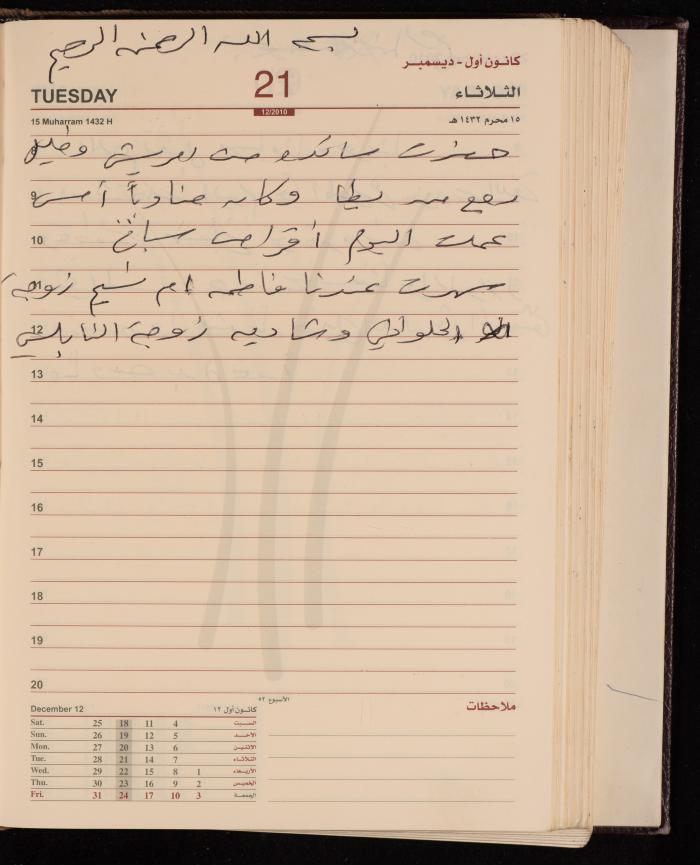 بسم الله الرحمن الرحيم
كانون أول - ديسمبر
TUESDAY 21 الثلاثاء
12/2010
15 Muharram 1432 H ١٥ محرم ١٤٣٢ هـ
حضرت من
9 وكان أمس
10 عملت اليوم أقراص سبانخ
11 سهرت عندنا فاطمه ام زوجة
12 الحلواني وشاديه زوجة النابلسي
13
14
15
16
17
18
19
20
الأسبوع ٥٢
ملاحظات
December 12 كانون أول ١٢
Sat. 25 18 11 4 السبت
Sun. 26 19 12 5 الأحد
Mon. 27 20 13 6 الاثنين
Tue. 28 21 14 7 الثلاثاء
Wed. 29 22 15 8 1 الأربعاء
Thu. 30 23 16 9 2 الخميس
Fri. 31 24 17 10 3 الجمعة